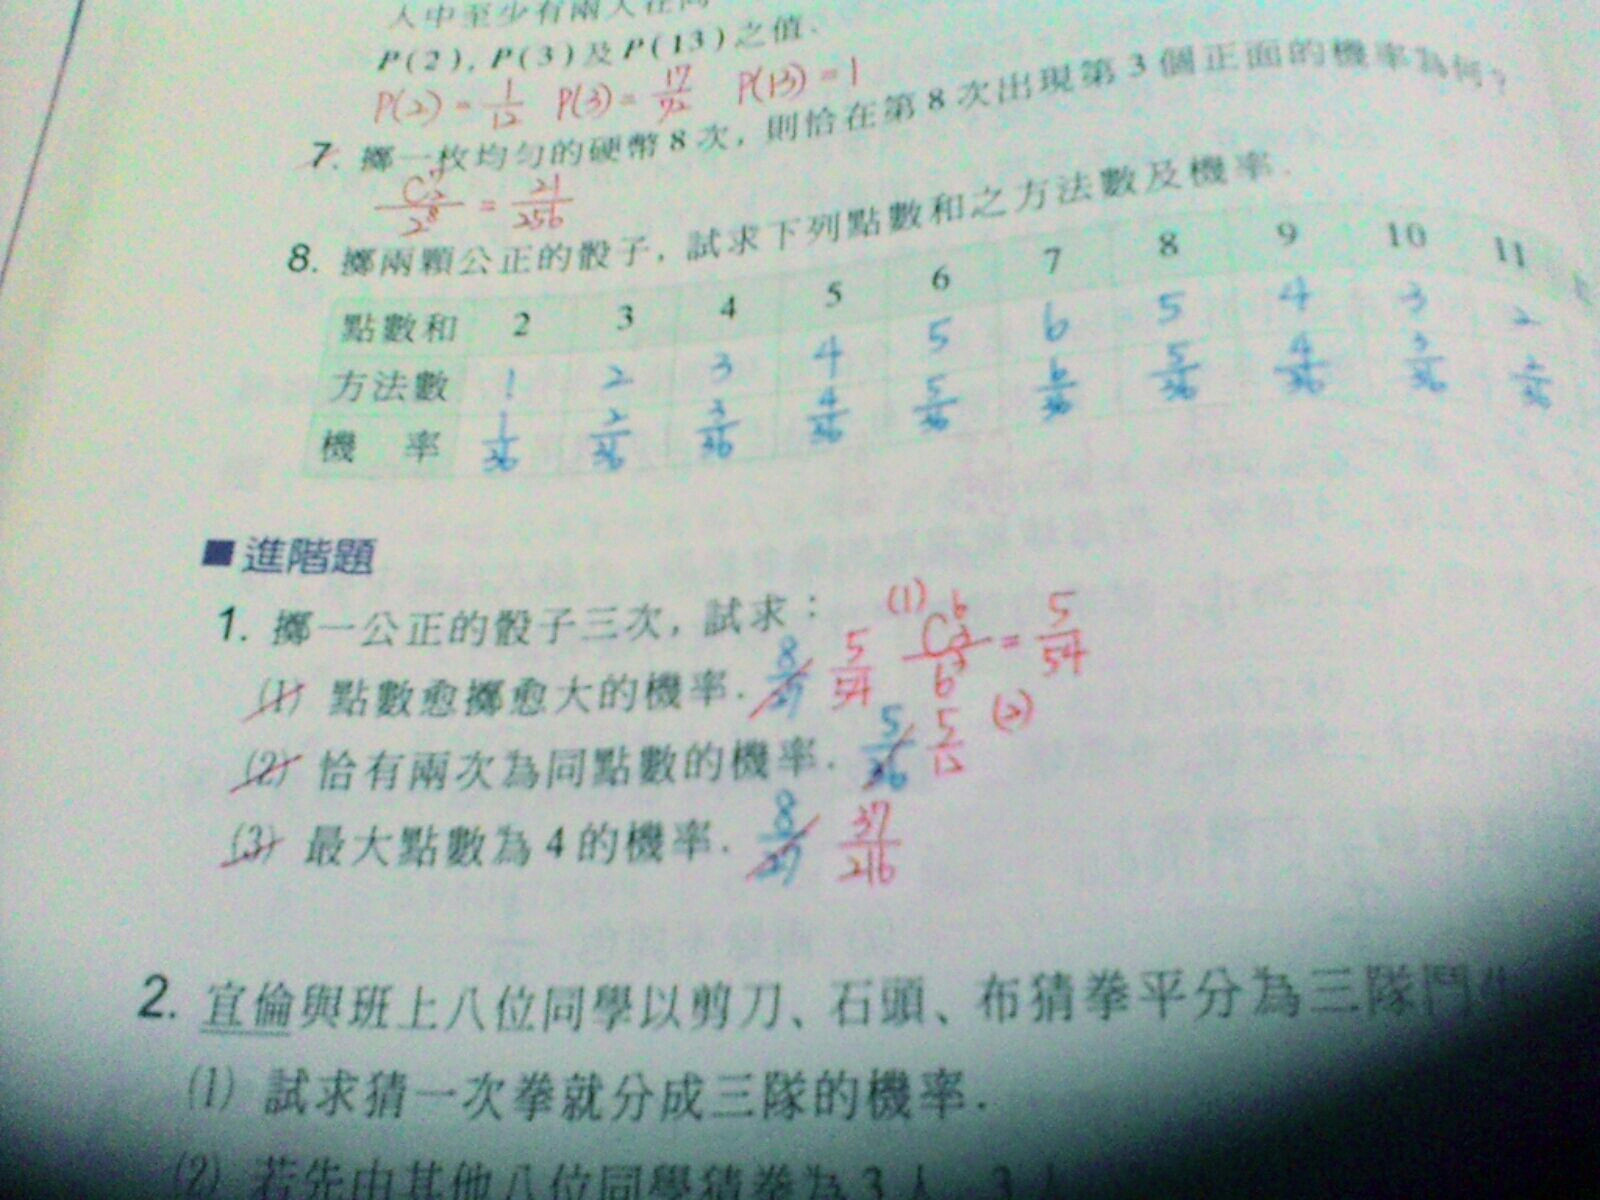 人中至少有兩人在同
P(2), P(3)及P(13)之值.
P(2) = 1/12 P(3) = 17/72 P(13) = 1
7. 擲一枚均勻的硬幣8次, 則恰在第8次出現第3個正面的機率為何?
C⁷₂/2⁸ = 21/256
8. 擲兩顆公正的骰子, 試求下列點數和之方法數及機率.
點數和 2 3 4 5 6 7 8 9 10 11
方法數 1 2 3 4 5 6 5 4 3 2
機 率 1/36 2/36 3/36 4/36 5/36 6/36 5/36 4/36 3/36 2/36
■進階題
1. 擲一公正的骰子三次, 試求:
(1) C⁶₃/6³ = 5/54
(1) 點數愈擲愈大的機率. 8/27 5/54
(2) 恰有兩次為同點數的機率. 5/36 5/12 (2)
(3) 最大點數為4的機率. 8/27 37/216
2. 宜倫與班上八位同學以剪刀、石頭、布猜拳平分為三隊鬥
(1) 試求猜一次拳就分成三隊的機率.
(2) 若先由其他八位同學猜拳為3人、3